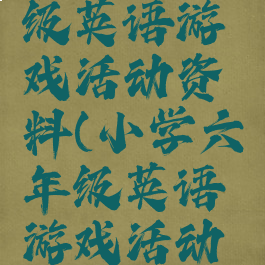 级英语游
戏活动资
料(小学六
年级英语
游戏活动